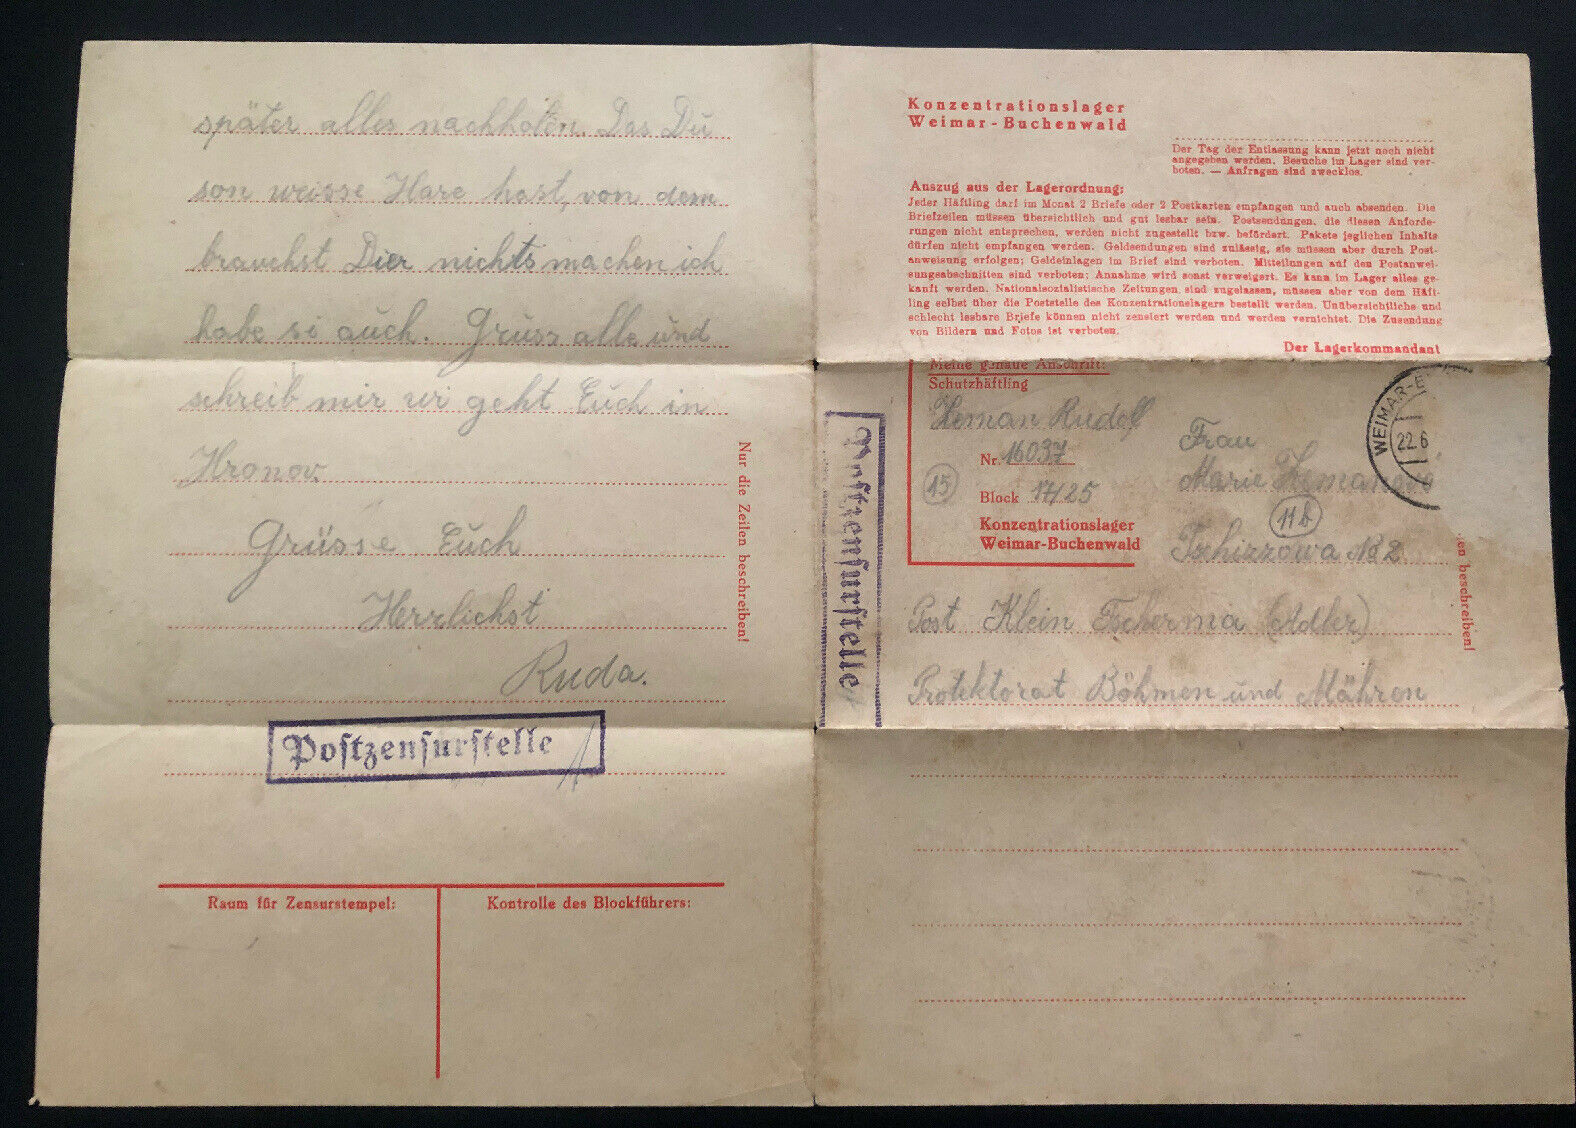 später alles nachholen. Das Du
son weisse Hare hast, von dem
brauchst Dier nichts machen ich
habe si auch. Grüss alle und
schreib mir wi geht Euch in
Hronov.
Grüsse Euch
Herrlichst
Ruda.
Nur die Zeilen beschreiben!
Postzensurstelle
Raum für Zensurstempel:
Kontrolle des Blockführers:
Konzentrationslager
Weimar-Buchenwald
Der Tag der Entlassung kann jetzt noch nicht
angegeben werden. Besuche im Lager sind ver-
boten. — Anfragen sind zwecklos.
Auszug aus der Lagerordnung:
Jeder Häftling darf im Monat 2 Briefe oder 2 Postkarten empfangen und auch absenden. Die
Briefzeilen müssen übersichtlich und gut lesbar sein. Postsendungen, die diesen Anforde-
rungen nicht entsprechen, werden nicht zugestellt bzw. befördert. Pakete jeglichen Inhalts
dürfen nicht empfangen werden. Geldsendungen sind zulässig, sie müssen aber durch Post-
anweisung erfolgen; Geldeinlagen im Brief sind verboten. Mitteilungen auf den Postanwei-
sungsabschnitten sind verboten; Annahme wird sonst verweigert. Es kann im Lager alles ge-
kauft werden. Nationalsozialistische Zeitungen sind zugelassen, müssen aber von dem Häft-
ling selbst über die Poststelle des Konzentrationslagers bestellt werden. Unübersichtliche und
schlecht lesbare Briefe können nicht zensiert werden und werden vernichtet. Die Zusendung
von Bildern und Fotos ist verboten.
Der Lagerkommandant
Meine genaue Anschrift:
Schutzhäftling
Zeman Rudolf
Nr. 16037
15
Block 17/25
Konzentrationslager
Weimar-Buchenwald
Postzensurstelle
WEIMAR-
22.6
Frau
Marie Zemanová
11b
Tschizzowa No 2
Post Klein Tscherma (Adler)
Protektorat Böhmen und Mähren
en beschreiben!